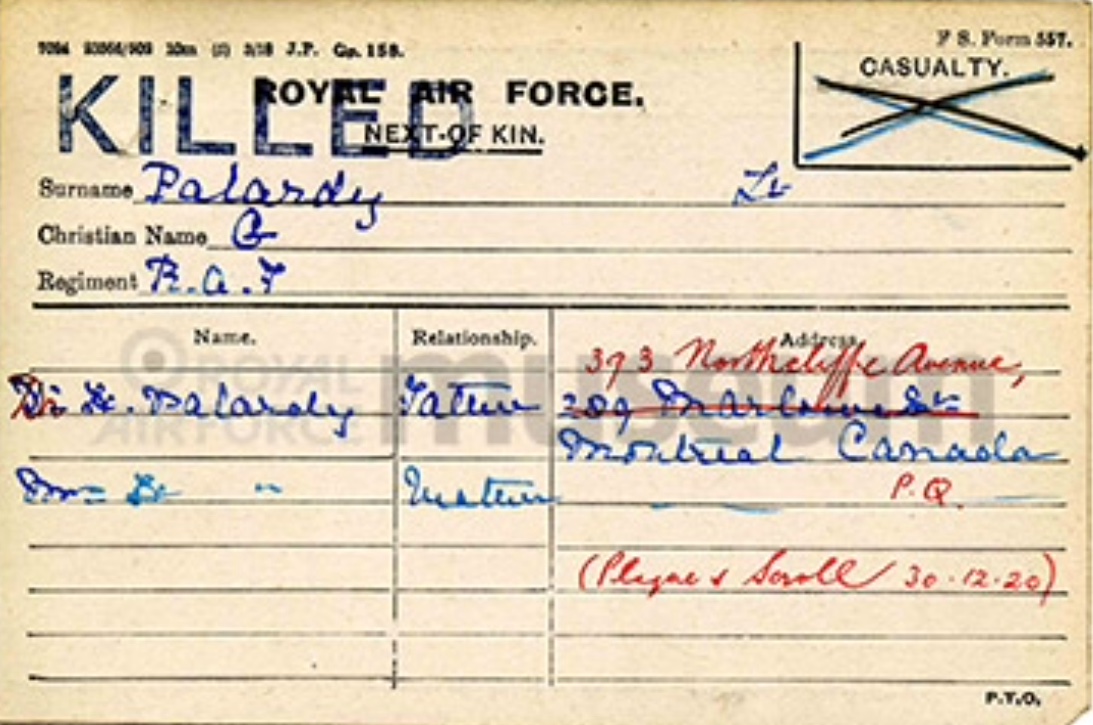 7094 93566/909 10m (5) 3/18 J.P. Gp. 158.
F S. Form 557.
CASUALTY.
KILLED
ROYAL AIR FORCE.
NEXT-OF KIN.
Surname Palardy Lt
Christian Name G
Regiment R.A.F
Name. Relationship. Address
373 Northcliffe Avenue,
Dr Palardy Father 209 Marlowe
Montreal Canada
Mrs " Mother P.Q.
(Plaque & Scroll 30.12.20)
P.T.O.
ROYAL AIR FORCE museum